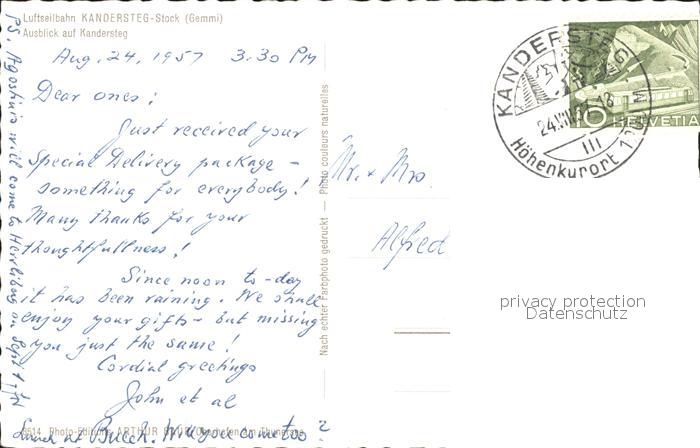 Luftseilbahn KANDERSTEG-Stock (Gemmi)
Ausblick auf Kandersteg
Aug. 24, 1957 3.30 PM
Dear ones:
Just received your
Special Delivery package -
something for everybody!
Many thanks for your
thoughtfullness!
Since noon to-day
it has been raining. We shall
enjoy your gifts - but missing
you just the same!
Cordial greetings
John et al
PS. Agostino will come to Herrliberg on Sept 1st
Lunch at Buech. Will you come too?
6614 Photo-Edition ARTHUR BAUR Oberhofen am Thunersee
Nach echter Farbphoto gedruckt — Photo couleurs naturelles
Mr. & Mrs.
Alfred
KANDERSTEG
24.VIII.57-18
Höhenkurort 1200 M
10
HELVETIA
privacy protection
Datenschutz